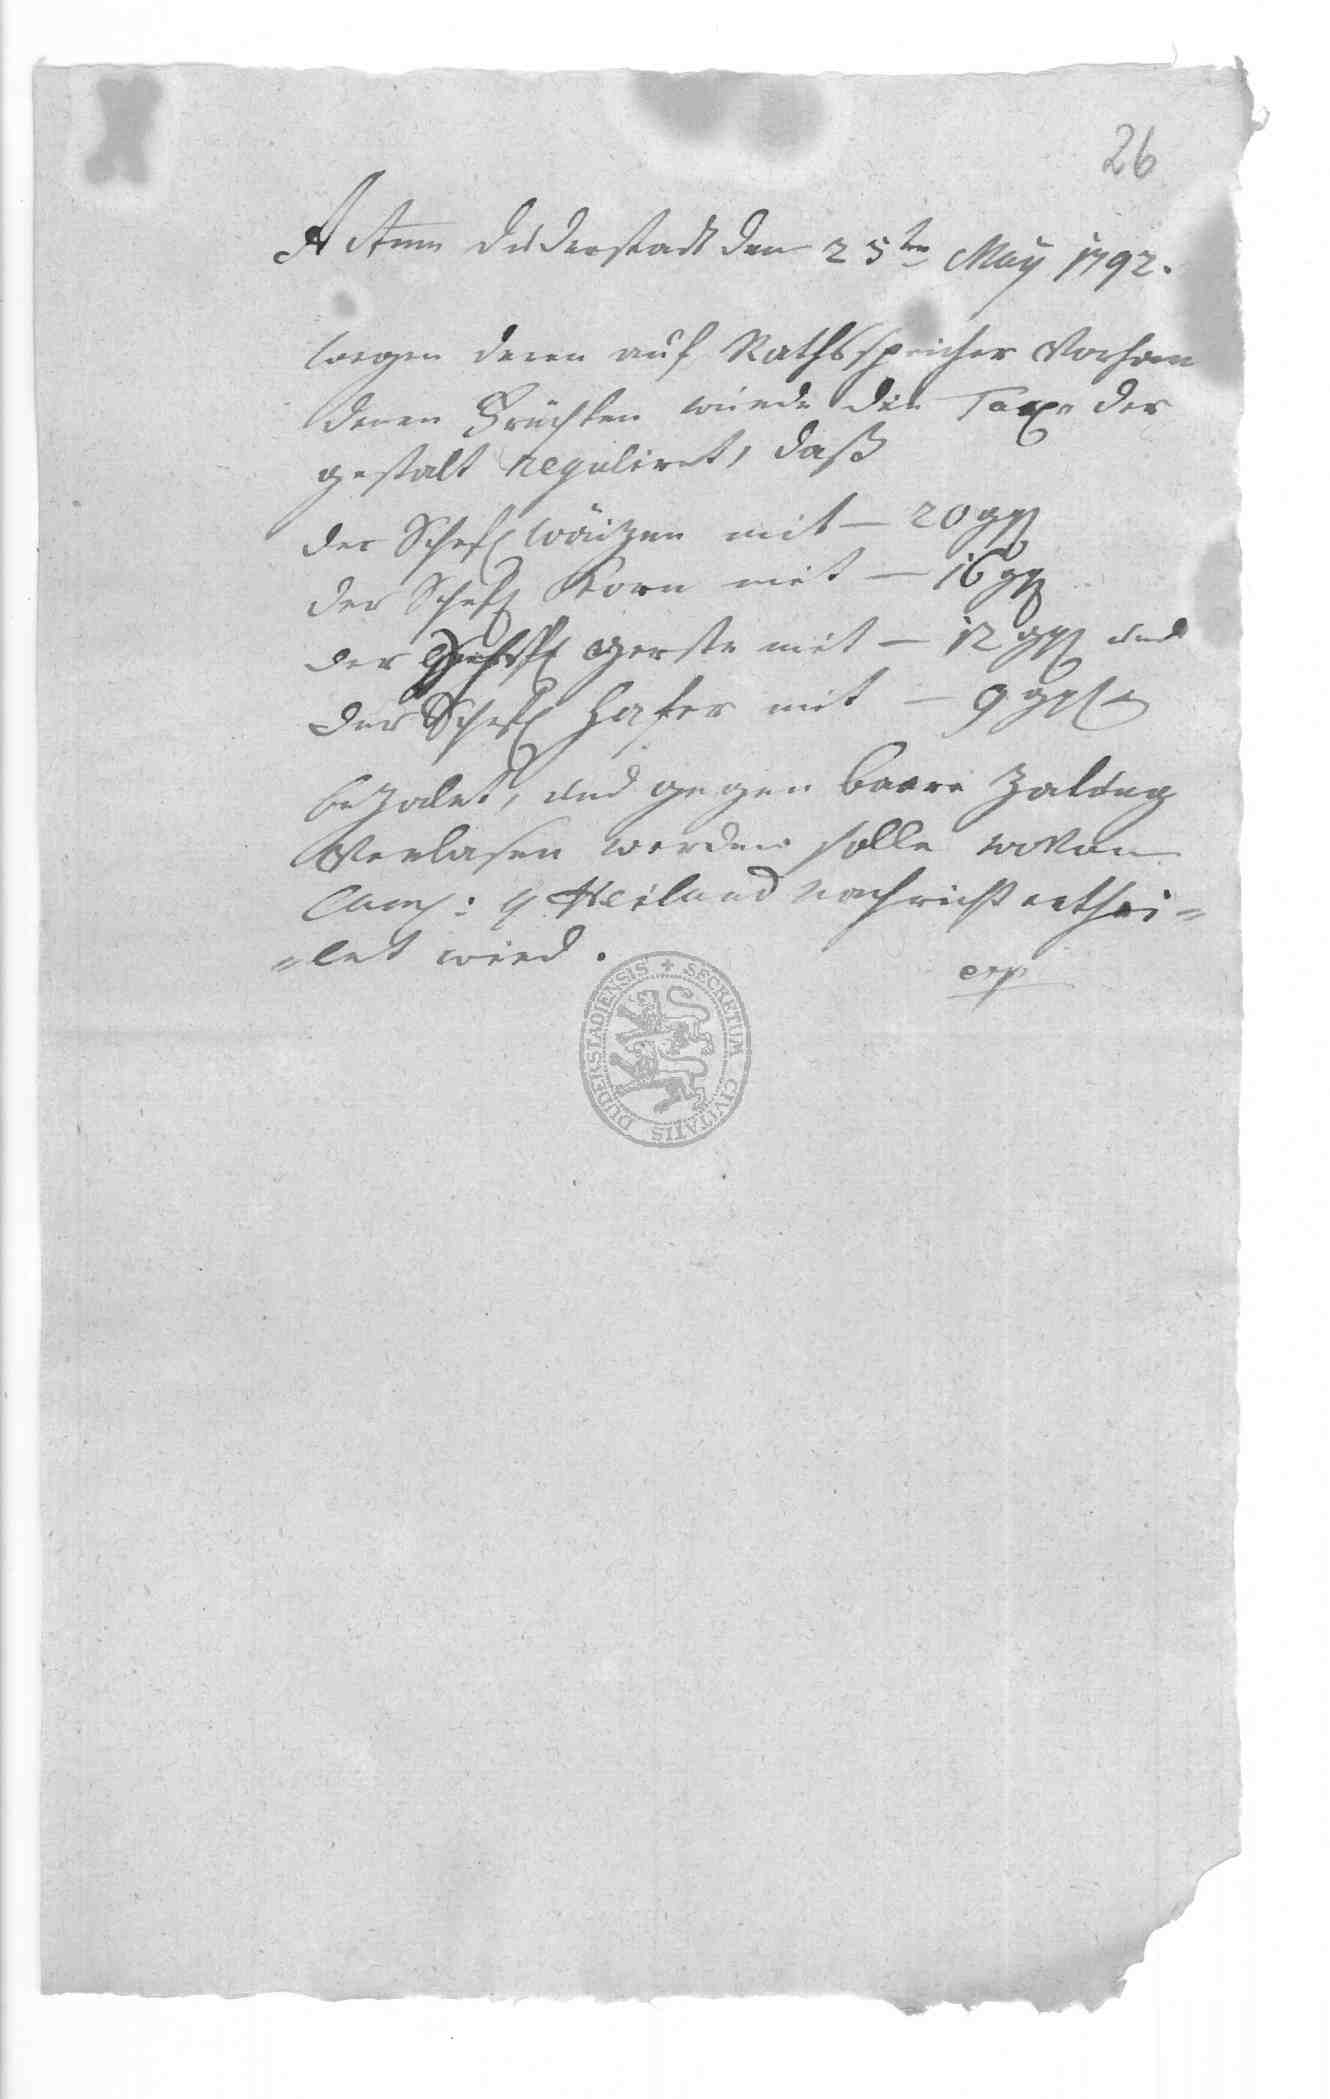 26
Actum Duderstadt den 25ten May 1792.
wegen deren auf Rathsspeicher Vorhan
denen Früchten wurde die Taxe der
gestalt reguliret, daß
der Schefl Wäitzen mit — 20 ggl
der Schefl Korn mit — 16 ggl
der Schefl gerste mit — 12 ggl und
der Schefl Hafer mit — 9 ggl
bezalet, und gegen baare Zalung
Verlasen werden solle wovon
Heiland Nachricht erthei=
=let wird.
SECRETUM CIVITATIS DUDERSTADIENSIS